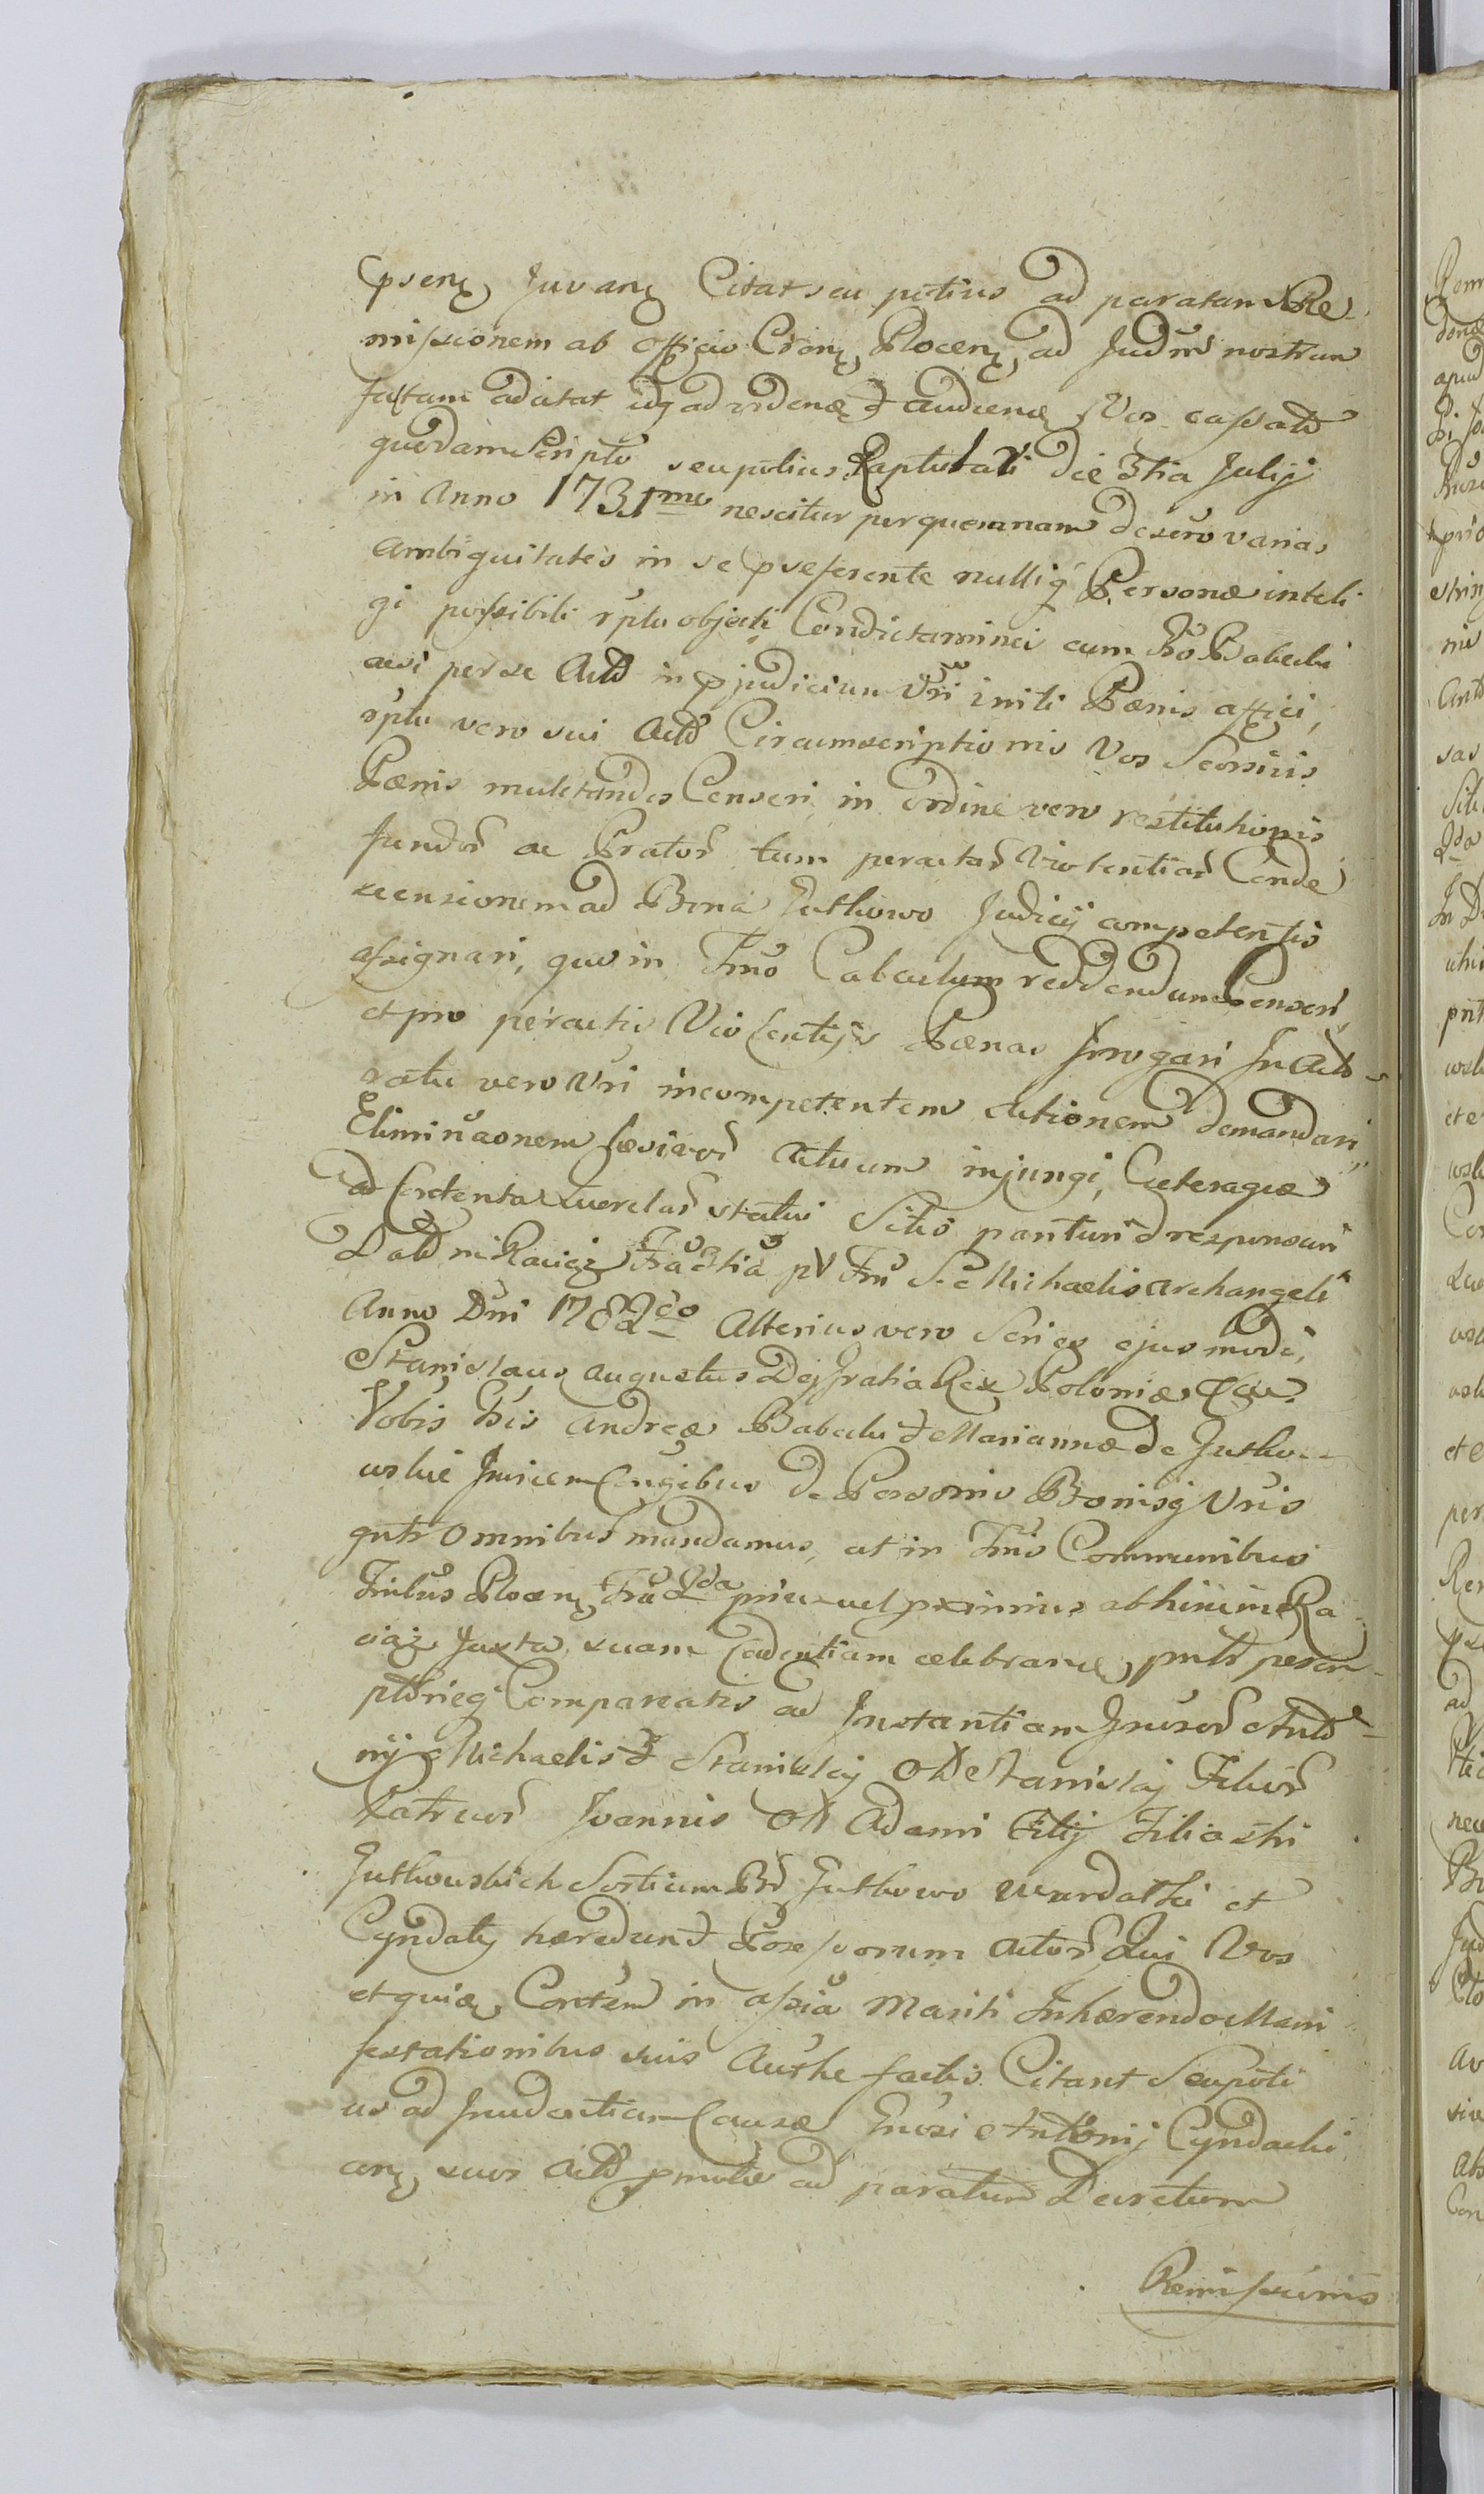 psens Juvans Citat seu potius ad paratam Re-
missionem ab Officio Crons Plocens ad Judm nostrum
factam adcitat idq ad vidend et audiend Vos cassato
quodam Scripto seu potius Raptulari die 3tia Julij
in Anno 1731mo nescitur per quemnam de sero varias
ambiguitates in se praeferente nulliq Personae inteli
gi possibili rptu objecti Condictaminei cum Gso Babecki
acsi per se Actor in pjudicium Vri initi Paenis affici,
rptu vero sui Actor Circumscriptionis Vos Seorsivis
Paenis mulctandos Censeri, in ordine vero restitutionis
fundor ac Prator tum peractar Violentiar Conde
scensionem ad Bona Gutkowo Judicij competentis
assignari, quo in Tmno Calculum reddendum Censeri,
et pro peractis Violentijs Paenas Irrogari In Acto
ratu vero Vri incompetentem Actionem demandari,
Eliminaonem laesivor Actuum injungi, Caeteraque
ad Contenta querelar statui Sitis parituri et responsuri
Datt in Raciąż Fra 3tia pt Fm S. Michaelis Archangeli
Anno Dni 1782do Alterius vero Series ejusmodi,
Stanislaus Augustus Dei Gratia Rex Poloniae &c.
Vobis Gsis Andreae Babecki et Mariannae de Gutko-
wskie Invicem Conjgibus de Personis Bonisq Vris
gntr Omnibus mandamus, ut in Tmnis Communibus
Tribus Plocens Fra 2da prius vel proximius ab hinc in Ra
ciąż Juxta suam Cadentiam celebrand, pntr perem-
ptrieq Compareatis ad Instantiam Gnrosor Anto-
nij Michaelis et Stanislaj Olt Stanislaj Filior
Patruor Joannis Olt Adami Filij Filiastri
Gutkowskich Sortium Br Gutkowo Wardatki et
Cyndaty haeredum et Possessorum Actor Qui Vos
et quid Contem in assia Mariti Inhaerendo Mani
festationibus suis Authe factis Citant Seu poti
us ad Incidentiam Causae Gnrosi Antonij Cyndacki
conq suos Actor pmotae ad paratum Decretum
Remissionis